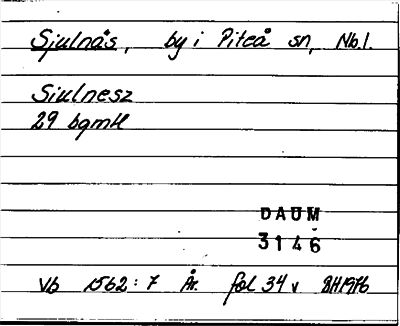 Sjulnäs, by i Piteå sn, Nb.l.
Siulnesz
29 bgmtl
DAUM
3146
Vb 1562:7 År. fol 34 v BH1976